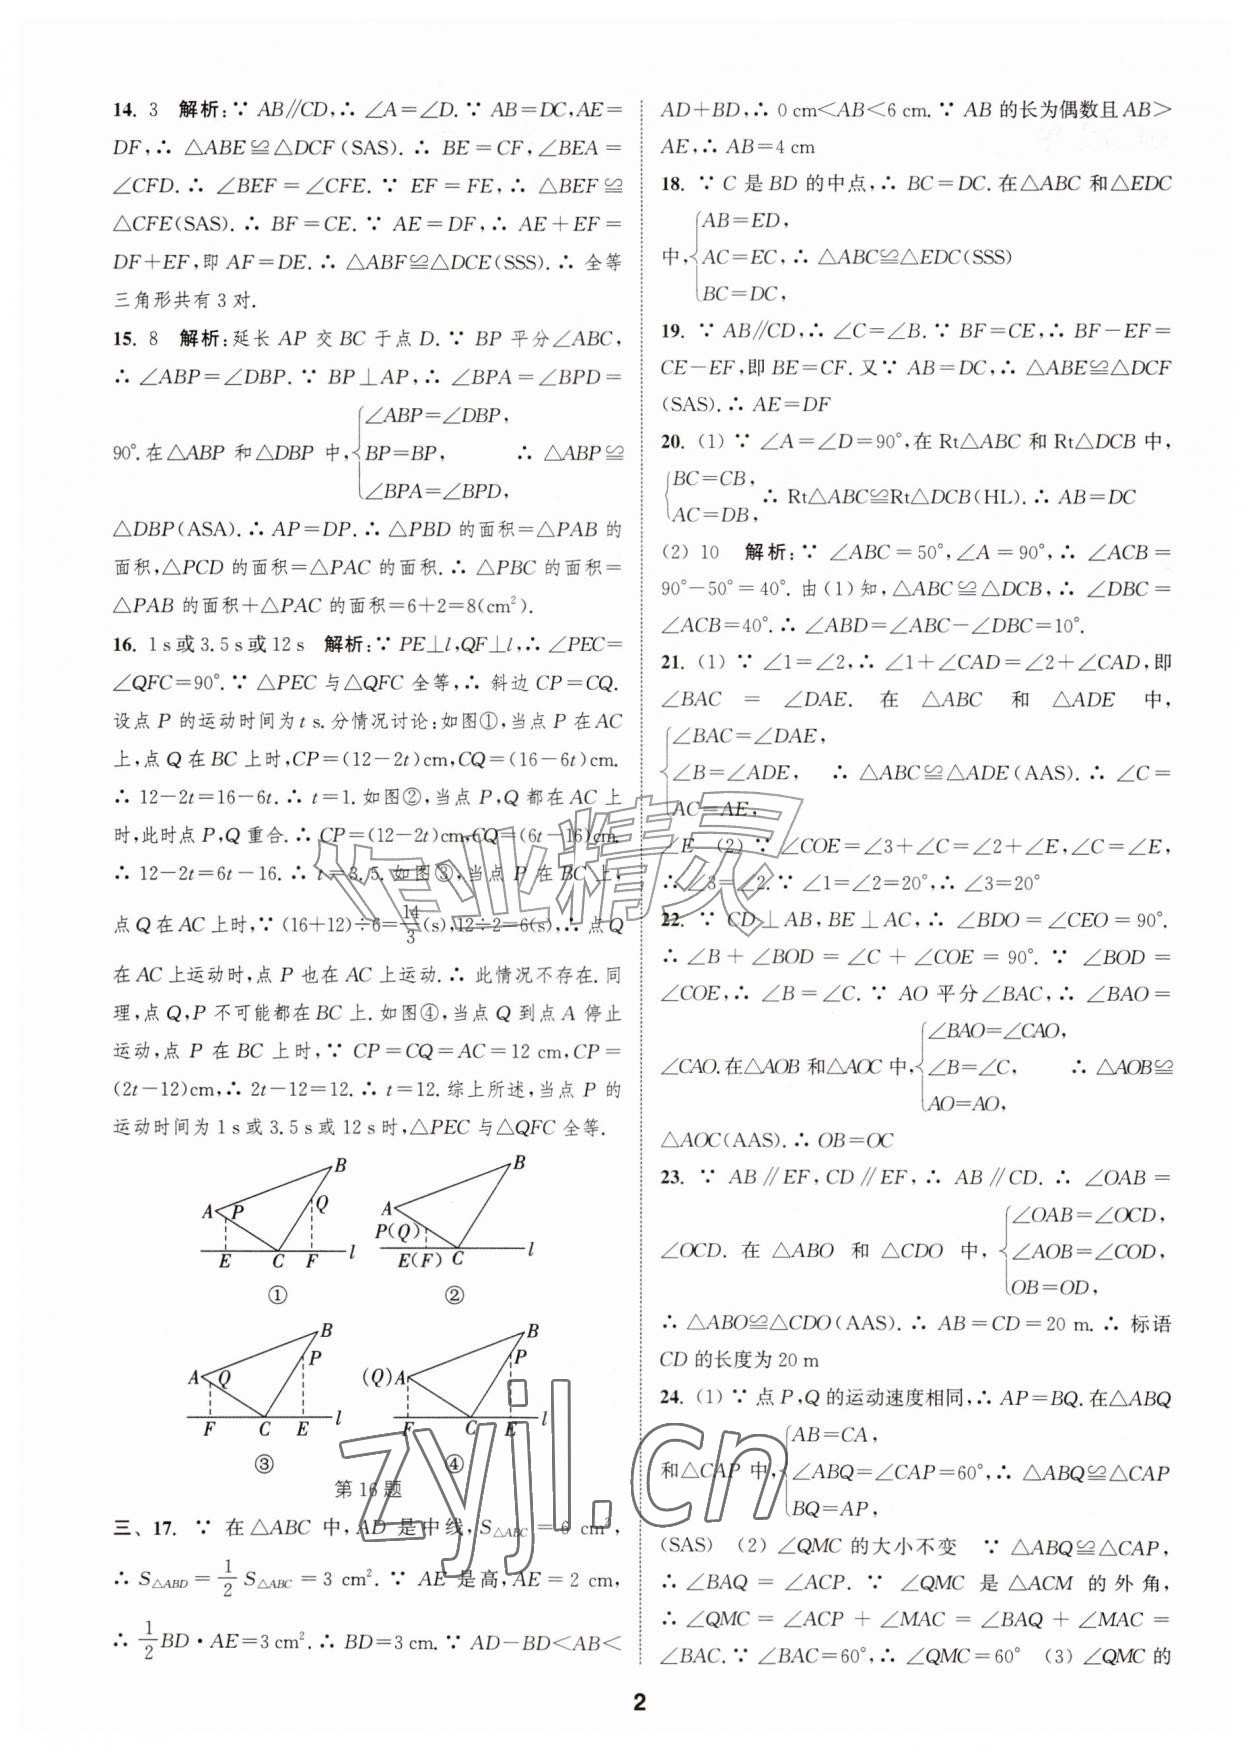 14. 3 解析:∵ AB∥CD,∴ ∠A=∠D.∵ AB=DC,AE=
DF,∴ △ABE≌△DCF(SAS).∴ BE=CF,∠BEA=
∠CFD.∴ ∠BEF=∠CFE.∵ EF=FE,∴ △BEF≌
△CFE(SAS).∴ BF=CE.∵ AE=DF,∴ AE+EF=
DF+EF,即 AF=DE.∴ △ABF≌△DCE(SSS).∴ 全等
三角形共有3对.
15. 8 解析:延长 AP 交 BC 于点 D.∵ BP 平分∠ABC,
∴ ∠ABP=∠DBP.∵ BP⊥AP,∴ ∠BPA=∠BPD=
90°.在△ABP 和△DBP 中,{∠ABP=∠DBP,
BP=BP,
∠BPA=∠BPD,
∴ △ABP≌
△DBP(ASA).∴ AP=DP.∴ △PBD 的面积=△PAB 的
面积,△PCD 的面积=△PAC 的面积.∴ △PBC 的面积=
△PAB 的面积+△PAC 的面积=6+2=8(cm²).
16. 1 s或3.5 s或12 s 解析:∵ PE⊥l,QF⊥l,∴ ∠PEC=
∠QFC=90°.∵ △PEC 与△QFC 全等,∴ 斜边 CP=CQ.
设点 P 的运动时间为 t s.分情况讨论:如图①,当点 P 在 AC
上,点 Q 在 BC 上时,CP=(12-2t)cm,CQ=(16-6t)cm.
∴ 12-2t=16-6t.∴ t=1.如图②,当点 P,Q 都在 AC 上
时,此时点 P,Q 重合.∴ CP=(12-2t)cm,CQ=(6t-16)cm.
∴ 12-2t=6t-16.∴ t=3.5.如图③,当点 P 在 BC 上,
点 Q 在 AC 上时,∵ (16+12)÷6=14/3(s),12÷2=6(s),∴ 点 Q
在 AC 上运动时,点 P 也在 AC 上运动.∴ 此情况不存在.同
理,点 Q,P 不可能都在 BC 上.如图④,当点 Q 到点 A 停止
运动,点 P 在 BC 上时,∵ CP=CQ=AC=12 cm,CP=
(2t-12)cm,∴ 2t-12=12.∴ t=12.综上所述,当点 P 的
运动时间为1 s或3.5 s或12 s时,△PEC 与△QFC 全等.
A P B Q E C F l
①
A B P(Q) E(F) C l
②
A Q B P F C E l
③
(Q) A B P F C E l
④
第16题
三、17. ∵ 在△ABC 中,AD 是中线,S△ABC=6 cm²,
∴ S△ABD=1/2 S△ABC=3 cm².∵ AE 是高,AE=2 cm,
∴ 1/2BD·AE=3 cm².∴ BD=3 cm.∵ AD-BD<AB<
AD+BD,∴ 0 cm<AB<6 cm.∵ AB 的长为偶数且 AB>
AE,∴ AB=4 cm
18. ∵ C 是 BD 的中点,∴ BC=DC.在△ABC 和△EDC
中,{AB=ED,
AC=EC,
BC=DC,
∴ △ABC≌△EDC(SSS)
19. ∵ AB∥CD,∴ ∠C=∠B.∵ BF=CE,∴ BF-EF=
CE-EF,即 BE=CF.又∵ AB=DC,∴ △ABE≌△DCF
(SAS).∴ AE=DF
20. (1) ∵ ∠A=∠D=90°,在 Rt△ABC 和 Rt△DCB 中,
{BC=CB,
AC=DB,
∴ Rt△ABC≌Rt△DCB(HL).∴ AB=DC
(2) 10 解析:∵ ∠ABC=50°,∠A=90°,∴ ∠ACB=
90°-50°=40°.由(1)知,△ABC≌△DCB,∴ ∠DBC=
∠ACB=40°.∴ ∠ABD=∠ABC-∠DBC=10°.
21. (1) ∵ ∠1=∠2,∴ ∠1+∠CAD=∠2+∠CAD,即
∠BAC = ∠DAE. 在 △ABC 和 △ADE 中,
{∠BAC=∠DAE,
∠B=∠ADE,
AC=AE,
∴ △ABC≌△ADE(AAS).∴ ∠C=
∠E (2) ∵ ∠COE=∠3+∠C=∠2+∠E,∠C=∠E,
∴ ∠3=∠2.∵ ∠1=∠2=20°,∴ ∠3=20°
22. ∵ CD⊥AB,BE⊥AC,∴ ∠BDO=∠CEO=90°.
∴ ∠B+∠BOD=∠C+∠COE=90°.∵ ∠BOD=
∠COE,∴ ∠B=∠C.∵ AO 平分∠BAC,∴ ∠BAO=
∠CAO.在△AOB 和△AOC 中,{∠BAO=∠CAO,
∠B=∠C,
AO=AO,
∴ △AOB≌
△AOC(AAS).∴ OB=OC
23. ∵ AB∥EF,CD∥EF,∴ AB∥CD.∴ ∠OAB=
∠OCD. 在 △ABO 和 △CDO 中,{∠OAB=∠OCD,
∠AOB=∠COD,
OB=OD,
∴ △ABO≌△CDO(AAS).∴ AB=CD=20 m.∴ 标语
CD 的长度为20 m
24. (1) ∵ 点 P,Q 的运动速度相同,∴ AP=BQ.在△ABQ
和△CAP 中,{AB=CA,
∠ABQ=∠CAP=60°,
BQ=AP,
∴ △ABQ≌△CAP
(SAS) (2) ∠QMC 的大小不变 ∵ △ABQ≌△CAP,
∴ ∠BAQ=∠ACP.∵ ∠QMC 是△ACM 的外角,
∴ ∠QMC=∠ACP+∠MAC=∠BAQ+∠MAC=
∠BAC.∵ ∠BAC=60°,∴ ∠QMC=60° (3) ∠QMC 的
作业精灵
zyjl.cn
2